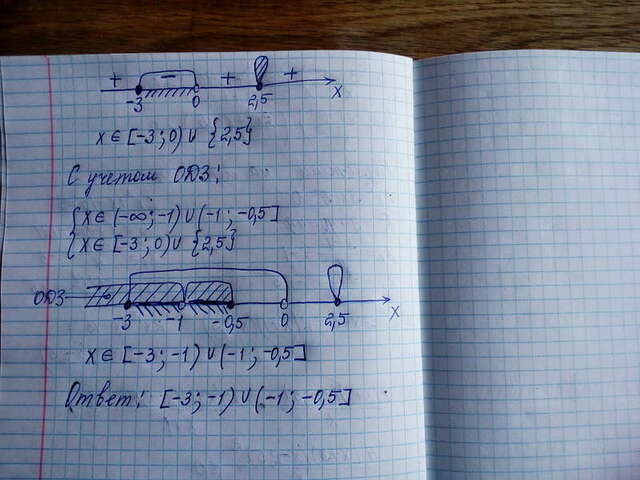 + − + +
-3 0 2,5 x
x ∈ [-3; 0) ∪ {2,5}
С учетом ОДЗ:
{ x ∈ (-∞; -1) ∪ (-1; -0,5]
{ x ∈ [-3; 0) ∪ {2,5}
ОДЗ
-3 -1 -0,5 0 2,5 x
x ∈ [-3; -1) ∪ (-1; -0,5]
Ответ: [-3; -1) ∪ (-1; -0,5]